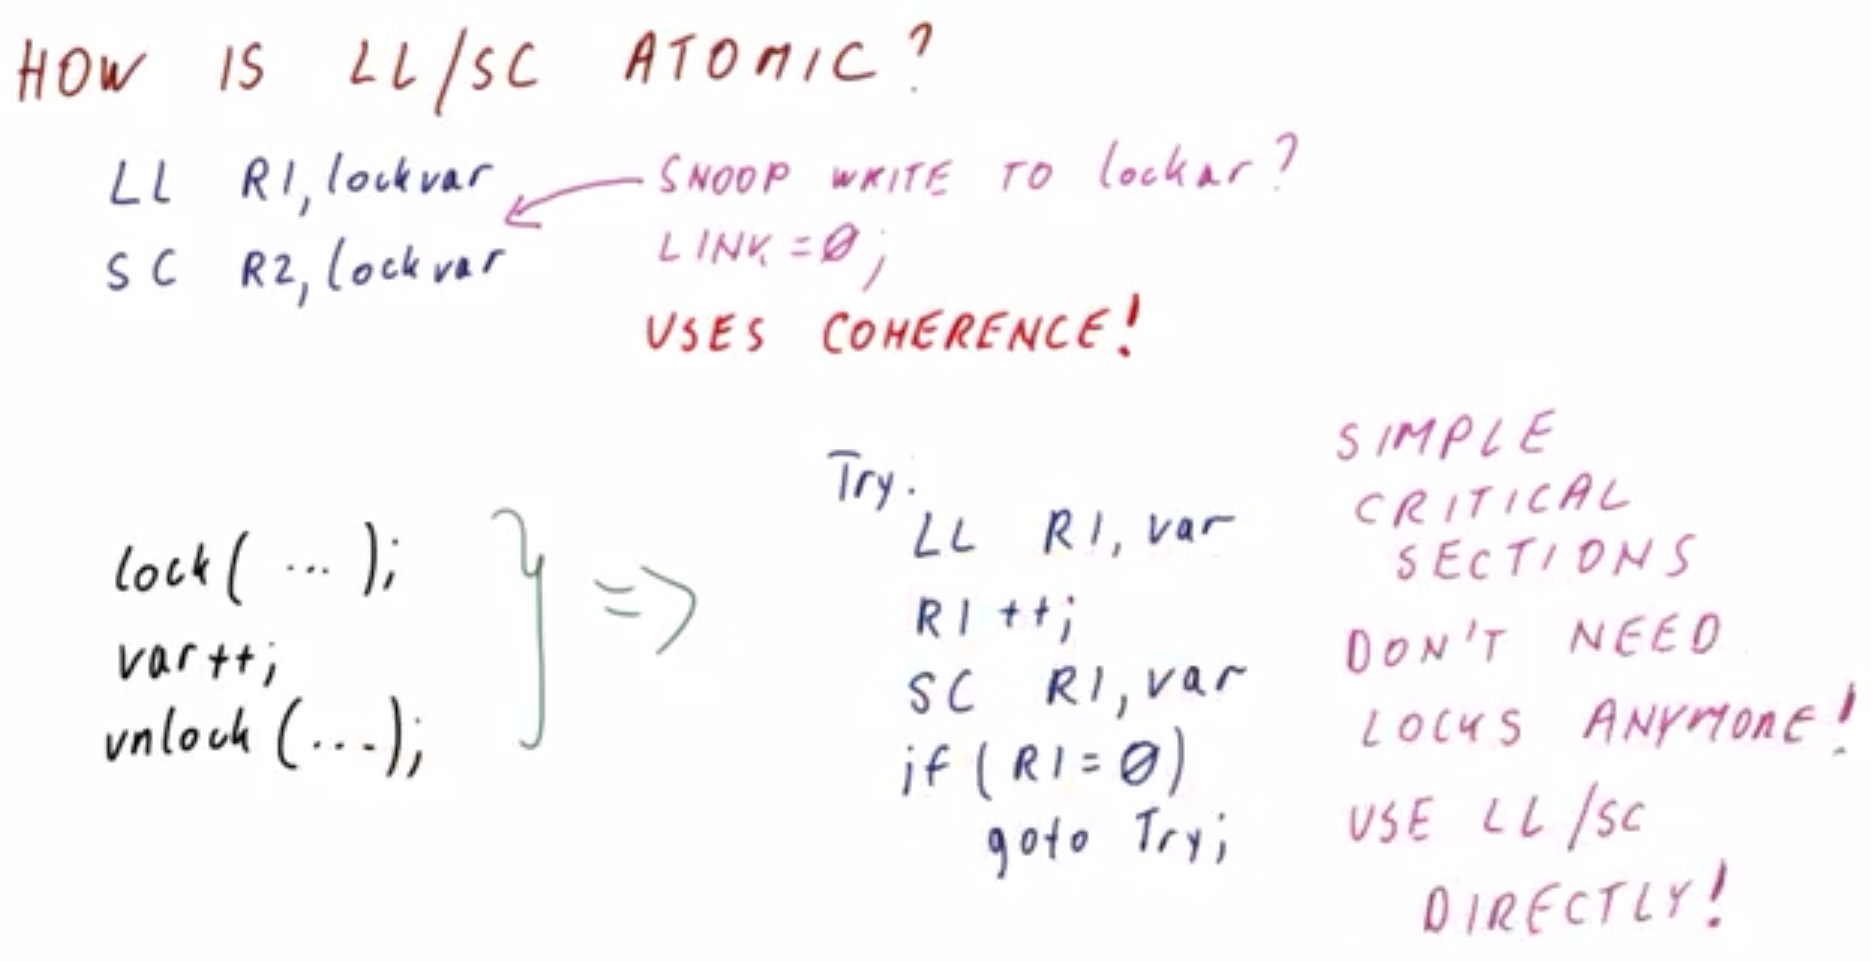 HOW IS LL/SC ATOMIC?
LL R1, lockvar
SC R2, lockvar
SNOOP WRITE TO lockar?
LINK = 0;
USES COHERENCE!
lock( ... );
var++;
unlock (...);
=>
Try:
LL R1, var
R1 ++;
SC R1, var
if ( R1 = 0 )
goto Try;
SIMPLE
CRITICAL
SECTIONS
DON'T NEED
LOCKS ANYMORE!
USE LL/SC
DIRECTLY!